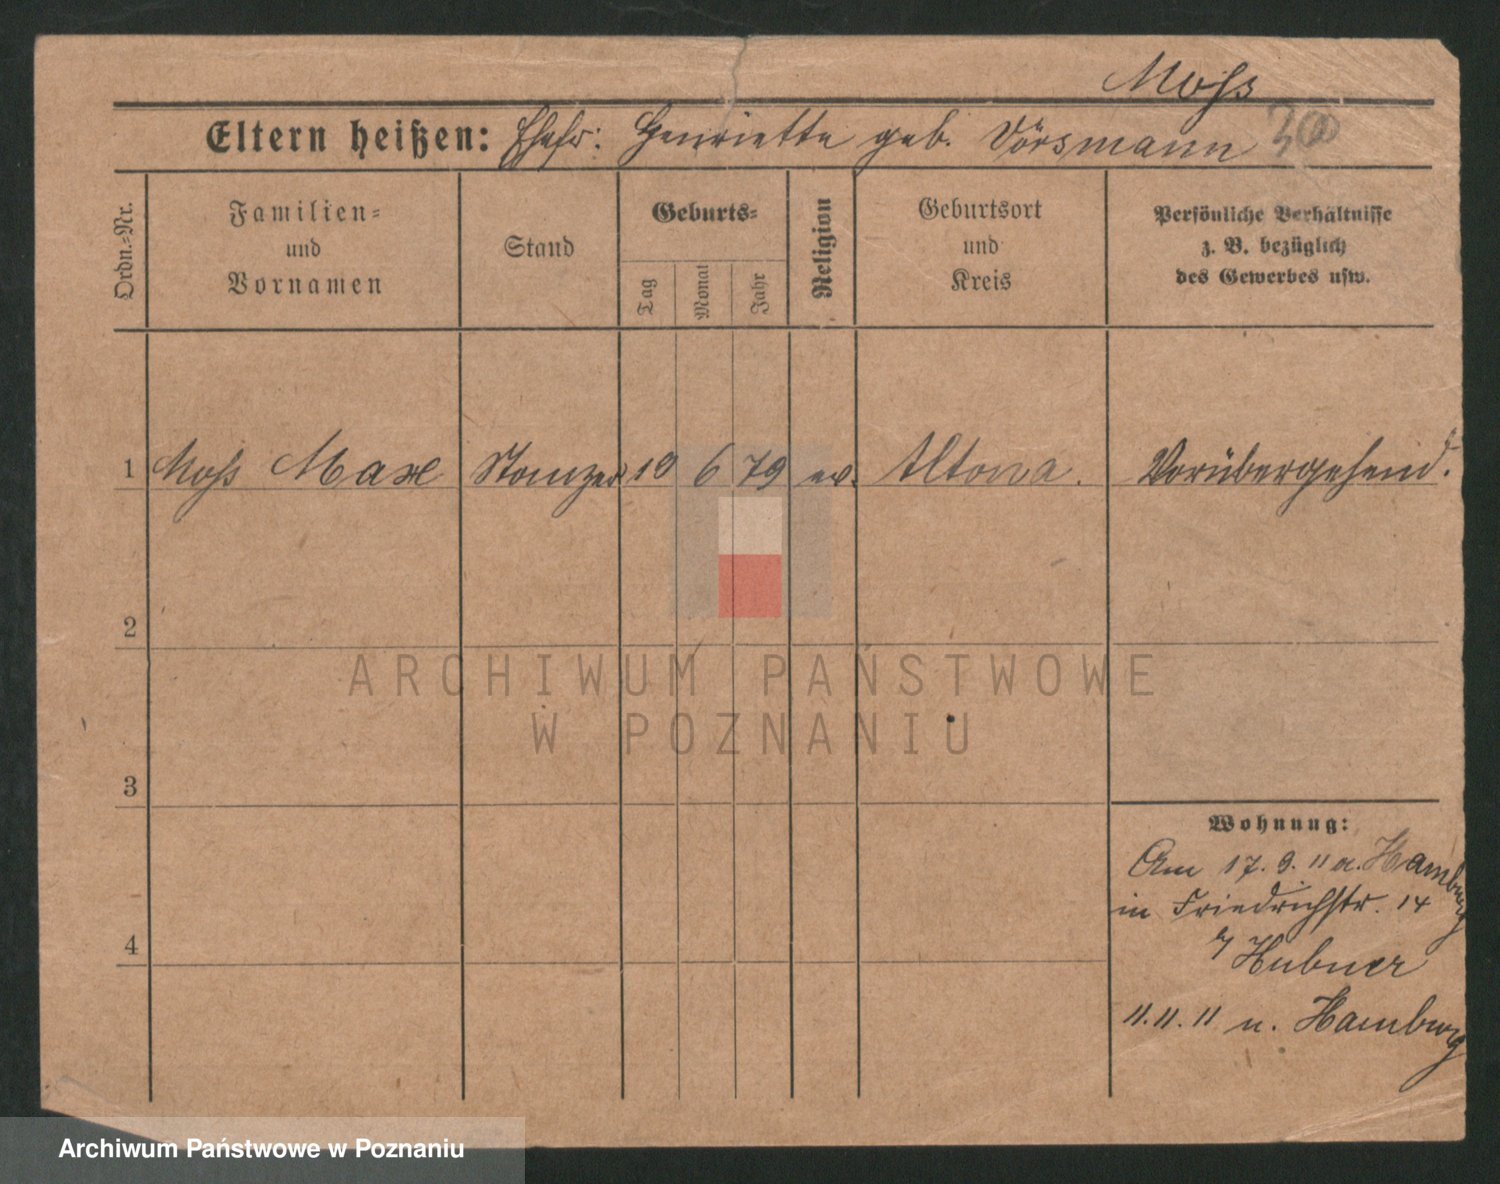 Moss
Eltern heißen: Ehefr: Henriette geb. Vörsmann 30
Ordn.-Nr.
Familien-
und
Vornamen
Stand
Geburts-
Tag
Monat
Jahr
Religion
Geburtsort
und
Kreis
Persönliche Verhältnisse
z. B. bezüglich
des Gewerbes usw.
1 Moss Max 19 6 79 ev. Altona. Vorübergehend.
2
ARCHIWUM PAŃSTWOWE
W POZNANIU
3
Wohnung:
Am 17. 9. 11 a. Hamburg
in Friedrichstr. 14
b/ Hubner
4
11. 11. 11 n. Hamburg
Archiwum Państwowe w Poznaniu